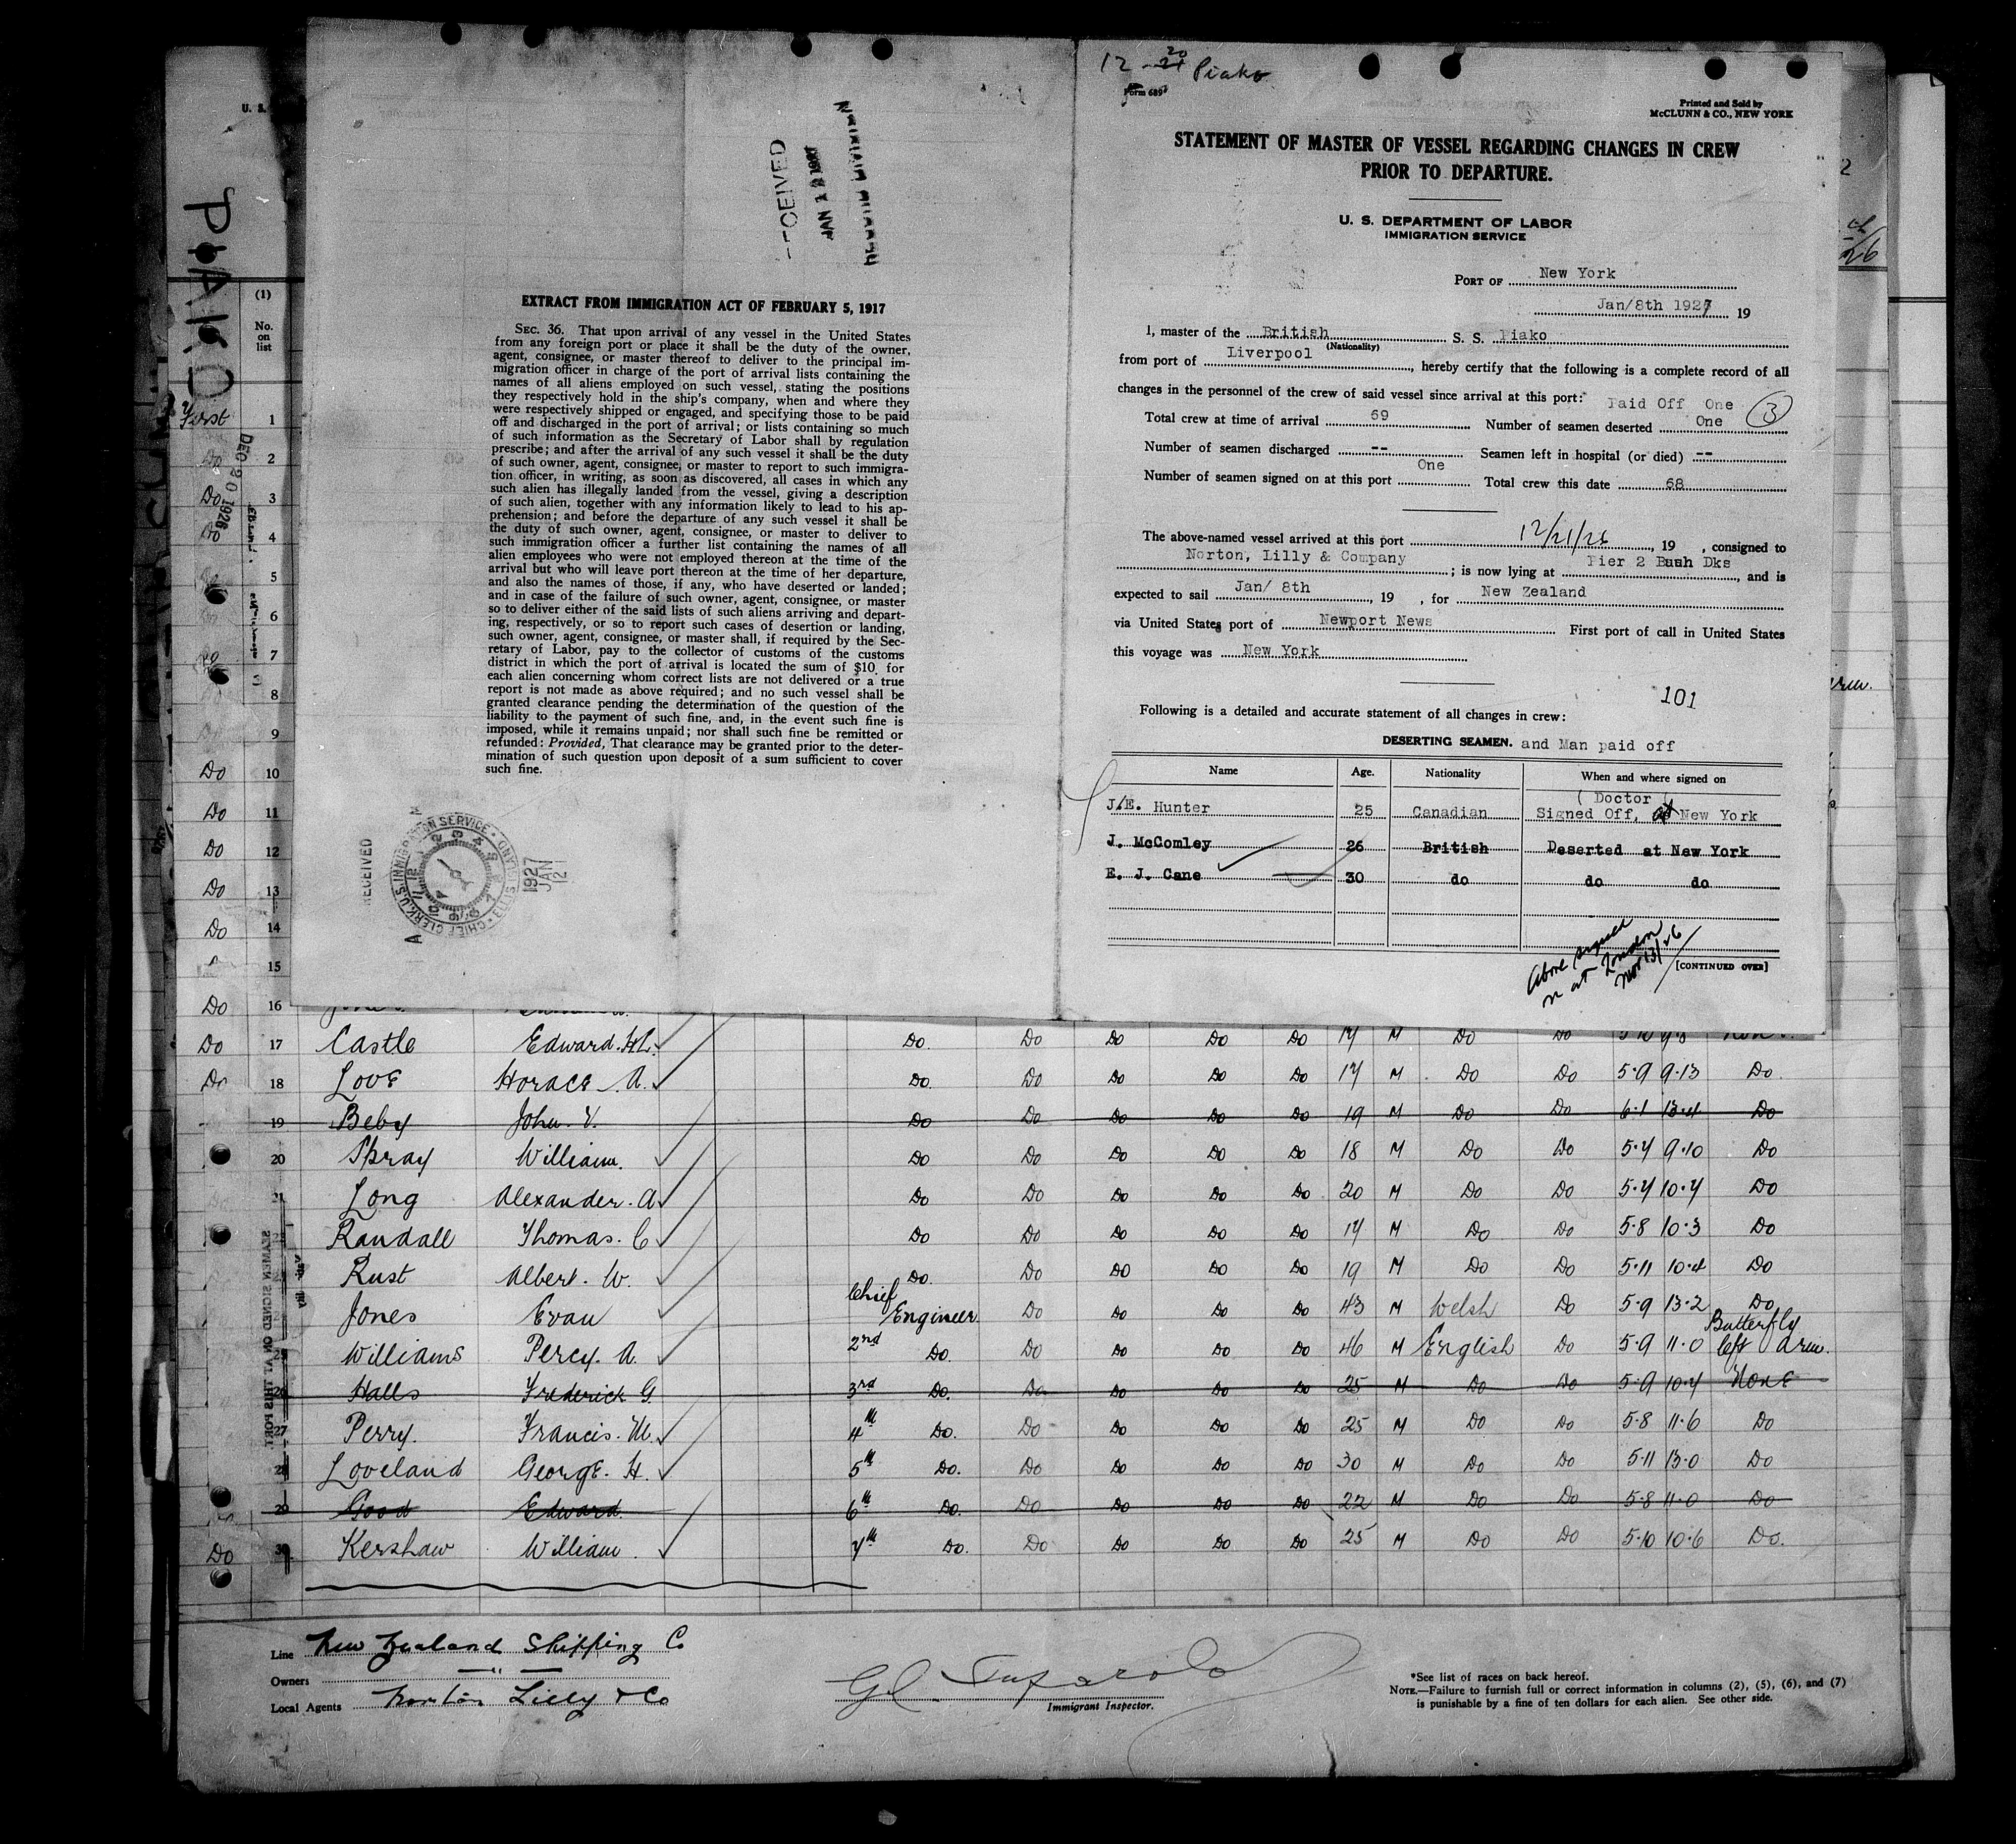 12-20 Piako
Form 689
Printed and Sold by
McCLUNN & CO., NEW YORK
STATEMENT OF MASTER OF VESSEL REGARDING CHANGES IN CREW
PRIOR TO DEPARTURE.
U. S. DEPARTMENT OF LABOR
IMMIGRATION SERVICE
PORT OF New York
Jan/8th 1927 19
I, master of the British S. S. Piako
(Nationality)
from port of Liverpool, hereby certify that the following is a complete record of all
changes in the personnel of the crew of said vessel since arrival at this port: Paid Off One
Total crew at time of arrival 69 Number of seamen deserted One 3
Number of seamen discharged -- Seamen left in hospital (or died) --
Number of seamen signed on at this port One Total crew this date 68
The above-named vessel arrived at this port 12/21/26, 19 , consigned to
Norton, Lilly & Company; is now lying at Pier 2 Bush Dks, and is
expected to sail Jan/ 8th, 19 , for New Zealand
via United States port of Newport News First port of call in United States
this voyage was New York
101
Following is a detailed and accurate statement of all changes in crew:
DESERTING SEAMEN. and Man paid off
Name Age. Nationality When and where signed on
( Doctor (
J.E. Hunter 25 Canadian Signed Off, at New York
J. McComley 26 British Deserted at New York
E. J. Cane 30 do do do
Above signed
on at London
Nov 13/26
[CONTINUED OVER]
RECEIVED
JAN 12 1927
EXTRACT FROM IMMIGRATION ACT OF FEBRUARY 5, 1917
SEC. 36. That upon arrival of any vessel in the United States
from any foreign port or place it shall be the duty of the owner,
agent, consignee, or master thereof to deliver to the principal im-
migration officer in charge of the port of arrival lists containing the
names of all aliens employed on such vessel, stating the positions
they respectively hold in the ship's company, when and where they
were respectively shipped or engaged, and specifying those to be paid
off and discharged in the port of arrival; or lists containing so much
of such information as the Secretary of Labor shall by regulation
prescribe; and after the arrival of any such vessel it shall be the duty
of such owner, agent, consignee, or master to report to such immigra-
tion officer, in writing, as soon as discovered, all cases in which any
such alien has illegally landed from the vessel, giving a description
of such alien, together with any information likely to lead to his ap-
prehension; and before the departure of any such vessel it shall be
the duty of such owner, agent, consignee, or master to deliver to
such immigration officer a further list containing the names of all
alien employees who were not employed thereon at the time of the
arrival but who will leave port thereon at the time of her departure,
and also the names of those, if any, who have deserted or landed;
and in case of the failure of such owner, agent, consignee, or master
so to deliver either of the said lists of such aliens arriving and depart-
ing, respectively, or so to report such cases of desertion or landing,
such owner, agent, consignee, or master shall, if required by the Sec-
retary of Labor, pay to the collector of customs of the customs
district in which the port of arrival is located the sum of $10 for
each alien concerning whom correct lists are not delivered or a true
report is not made as above required; and no such vessel shall be
granted clearance pending the determination of the question of the
liability to the payment of such fine, and, in the event such fine is
imposed, while it remains unpaid; nor shall such fine be remitted or
refunded: Provided, That clearance may be granted prior to the deter-
mination of such question upon deposit of a sum sufficient to cover
such fine.
RECEIVED
CHIEF CLERK, U.S. IMMIGRATION SERVICE · ELLIS ISLAND
1927 JAN 12
U. S.
PIAKO
(1)
No.
on
list
DEC 20 1926
First 1
Do 2
Do 3
Do 4
5
6
7
8
9
Do 10
Do 11
Do 12
Do 13
Do 14
15
Do 16
Do 17 Castle Edward. H.L. Do. Do Do Do Do 17 M Do Do
Do 18 Love Horace A. Do. Do Do Do Do 17 M Do Do 5·9 9·13 Do
19 Beby John. V. Do Do Do Do Do 19 M Do Do 6·1 13·4 Do
20 Spray William. Do Do Do Do Do 18 M Do Do 5·4 9·10 Do
21 Long Alexander. A. Do Do Do Do Do 20 M Do Do 5·4 10·4 Do
Randall Thomas. C Do Do Do Do Do 17 M Do Do 5·8 10·3 Do
Rust Albert. W. Do. Do Do Do Do 19 M Do Do 5·11 10·4 Do
Jones Evan Chief Engineer Do Do Do Do 43 M Welsh Do 5·9 13·2 Do
Williams Percy. A. 2nd Do. Do Do Do Do 46 M English Do 5·9 11·0 Butterfly left arm.
26 Halls Frederick G. 3rd Do. Do Do Do Do 25 M Do Do 5·9 10·4 None
27 Perry. Francis. M. 4th Do. Do Do Do Do 25 M Do Do 5·8 11·6 Do
28 Loveland George. H. 5th Do. Do Do Do Do 30 M Do Do 5·11 13·0 Do
29 Good Edward 6th Do. Do Do Do Do 22 M Do Do 5·8 11·0 Do
Do 30 Kershaw William. 7th Do. Do Do Do Do 25 M Do Do 5·10 10·6 Do.
SEAMEN SIGNED ON AT THIS PORT
Line New Zealand Shipping Co
Owners — " —
Local Agents Norton Lilly & Co
Immigrant Inspector.
*See list of races on back hereof.
NOTE.—Failure to furnish full or correct information in columns (2), (5), (6), and (7)
is punishable by a fine of ten dollars for each alien. See other side.